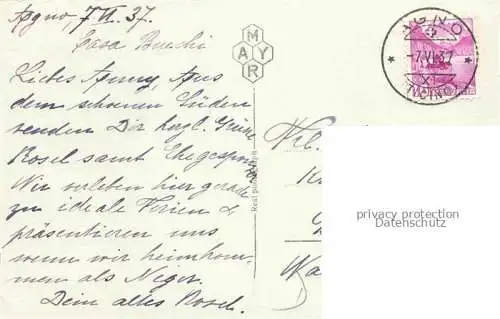 Agno, 7.VI.37.
Casa Bianchi
Liebes Anny, Aus
dem schoenen Süden
senden Dir herzl. Grüsse
Rosel samt Ehegespons
Wir verleben hier gerade
zu ideale Ferien &
präsentieren uns
wenn wir heimkom-
men als Neger.
Dein altes Rosel.
MAYR
Real photograph
AGNO
-7.VI.37
X
TICINO
Frl.
privacy protection
Datenschutz